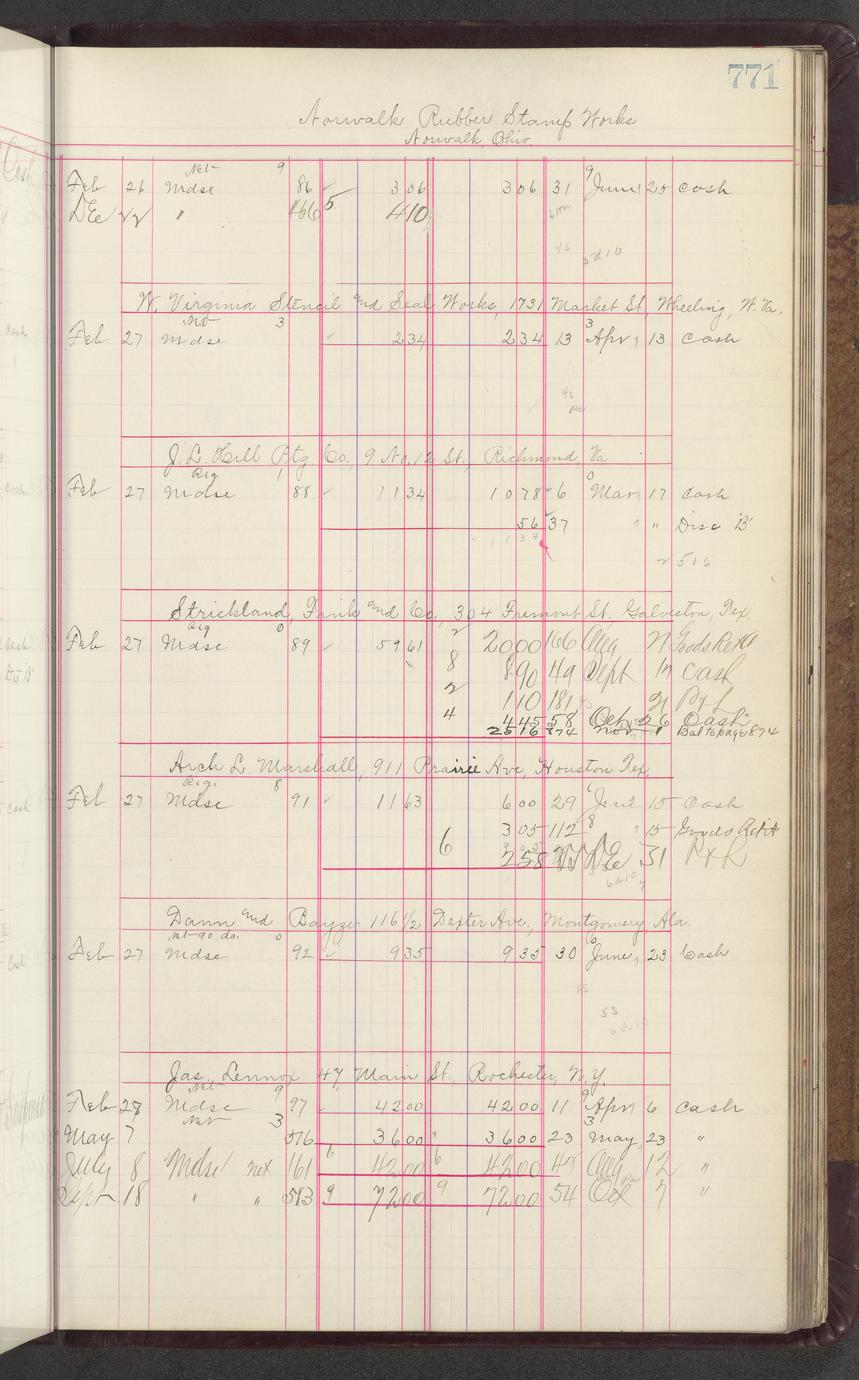 771
Norwalk Rubber Stamp Works
Norwalk, Ohio.
Net 9 9
Feb 26 Mdse 86 3 06 3 06 31 June 25 Cash
DEc 22 " 466 5 4 10
4s 5 d 10
W. Virginia Stencil and Seal Works, 1731 Market St, Wheeling, W. Va.
Net 3 3
Feb 27 Mdse 2 34 2 34 13 Apr 13 Cash
4s
J. L. Hill Ptg. Co., 9 No. 12 St., Richmond, Va
Reg 1 0
Feb 27 Mdse 88 11 34 10 78 6 Mar 17 Cash
56 37 " " Disc "B"
11 34
2 516
Strickland, Fink and Co., 304 Fremont St. Galveston, Tex.
Reg 0 2
Feb 27 Mdse 89 59 61 20 00 166 Aug 27 Goods Retd
8 8 90 49 Sept 17 Cash
2 1 10 181 21 P & L
4 4 45 58 Oct 26 Cash
25 16 874 Nov 1 Bal to page 874
Arch L. Marshall, 911 Prairie Ave, Houston Tex.
Reg. 8 6
Feb 27 Mdse 91 11 63 6 00 29 June 15 Cash
3 05 112 8 " 15 Goods Retd
6 2 58 DEc 31 P & L
6 d 10
Dann and Bayze 116 1/2 Dexter Ave, Montgomery Ala.
Net 90 da. 0 0
Feb 27 Mdse 92 9 35 9 35 30 June 23 Cash
4s
5s
6 d 10
Jas. Lennox 47 Main St., Rochester, N.Y.
Net 9 9
Feb 28 Mdse 97 42 00 42 00 11 Apr 6 Cash
Net 3 3
May 7 576 36 00 36 00 23 May 23 "
July 8 Mdse net 161 6 42 00 6 42 00 47 Aug 12 "
Sept 18 " " 583 9 72 00 9 72 00 54 Oct 7 "